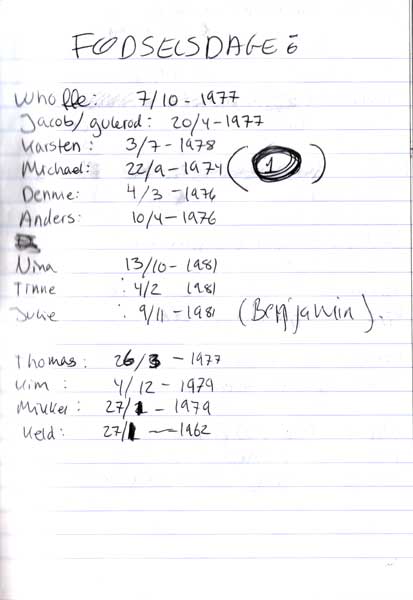 FØDSELSDAGE
Whoffe: 7/10 - 1977
Jacob/gulerod: 20/4 - 1977
Karsten: 3/7 - 1978
Michael: 22/9 - 1974 (1)
Dennie: 4/3 - 1976
Anders: 10/4 - 1976
Nina 13/10 - 1981
Tinne : 4/2 1981
Julie : 9/11 - 1981 (Benjamin).
Thomas: 26/3 - 1977
Kim : 4/12 - 1979
Mikkel: 27/1 - 1979
Keld: 27/1 - 1962